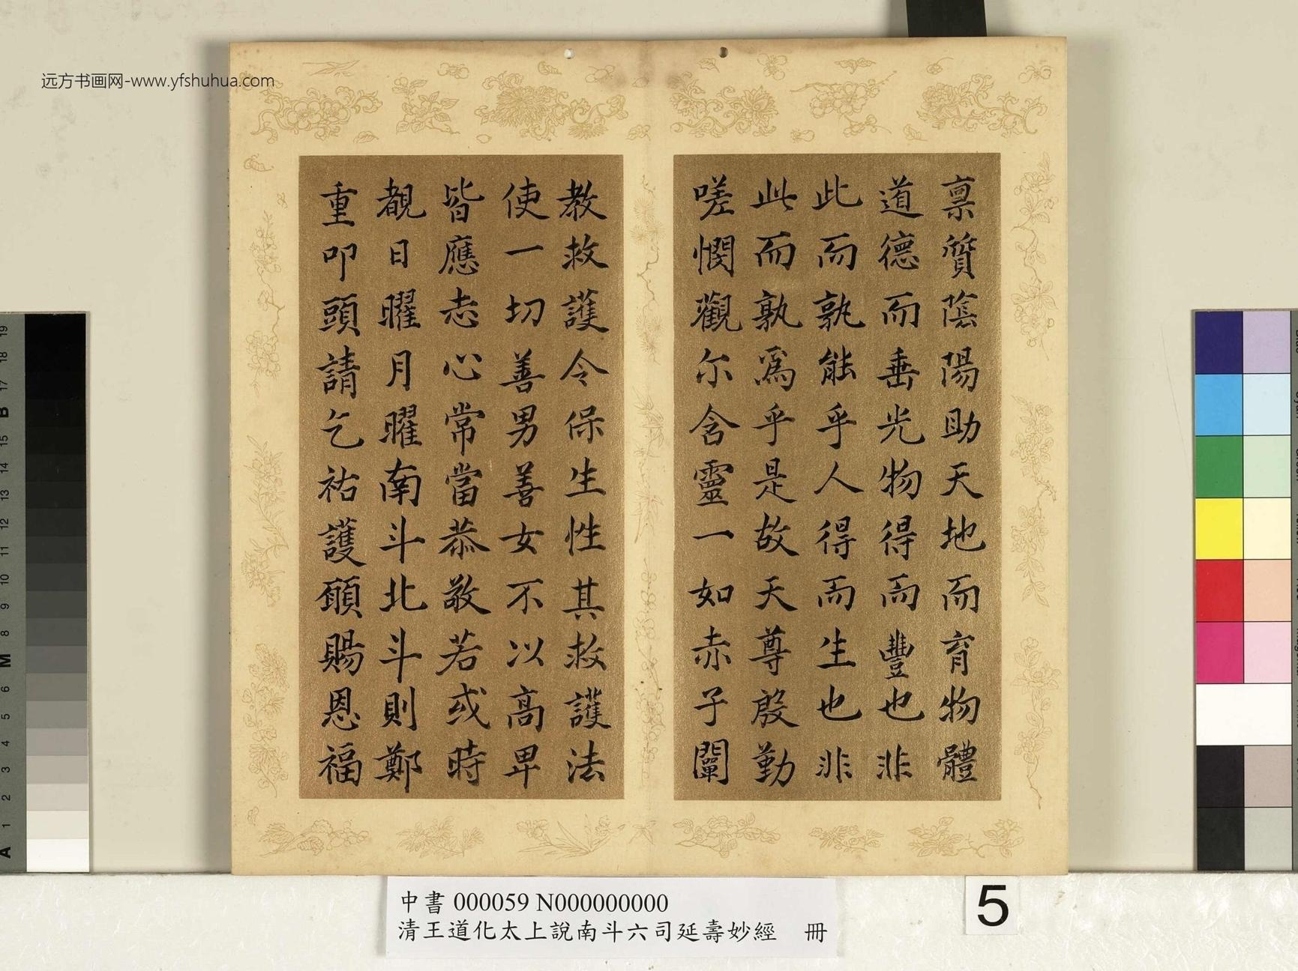 远方书画网-www.yfshuhua.com
稟質陰陽助天地而育物體
道德而垂光物得而豐也非
此而孰能乎人得而生也非
此而孰為乎是故天尊殷勤
嗟憫觀尓含靈一如赤子闡
教救護令保生性其救護法
使一切善男善女不以高卑
皆應志心常當恭敬若或時
覩日曜月曜南斗北斗則鄭
重叩頭請乞祐護願賜恩福
中書 000059 N000000000
清王道化太上說南斗六司延壽妙經 冊
5
A 1 2 3 4 5 6 M 8 9 10 11 12 13 14 15 B 17 18 19